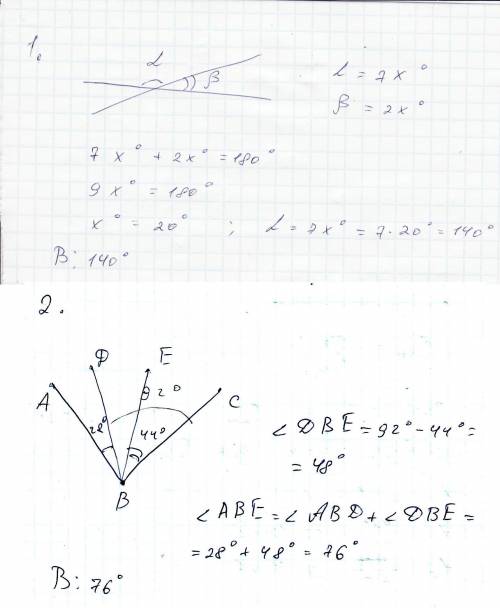 1.
α
β
α = 7x°
β = 2x°
7x° + 2x° = 180°
9x° = 180°
x° = 20° ; α = 7x° = 7·20° = 140°
B: 140°
2.
D
E
A
C
28°
92°
44°
B
∠DBE = 92° - 44° =
= 48°
∠ABE = ∠ABD + ∠DBE =
= 28° + 48° = 76°
B: 76°